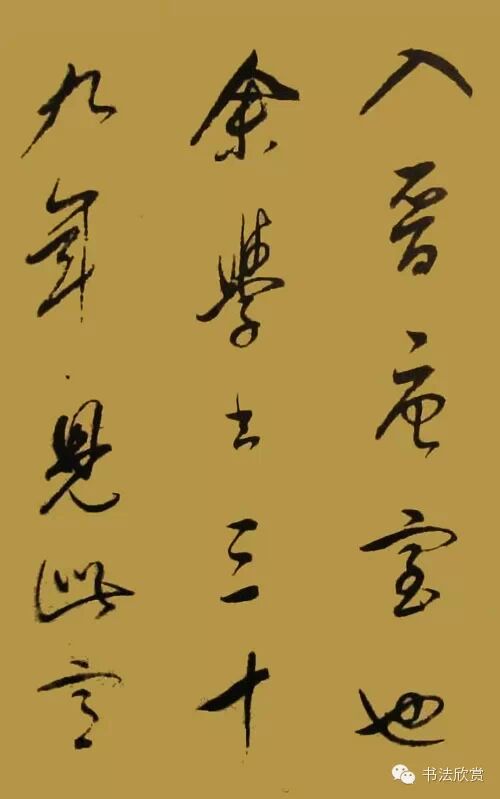 入晉唐室也
余學書三十
九年見此意
书法欣赏